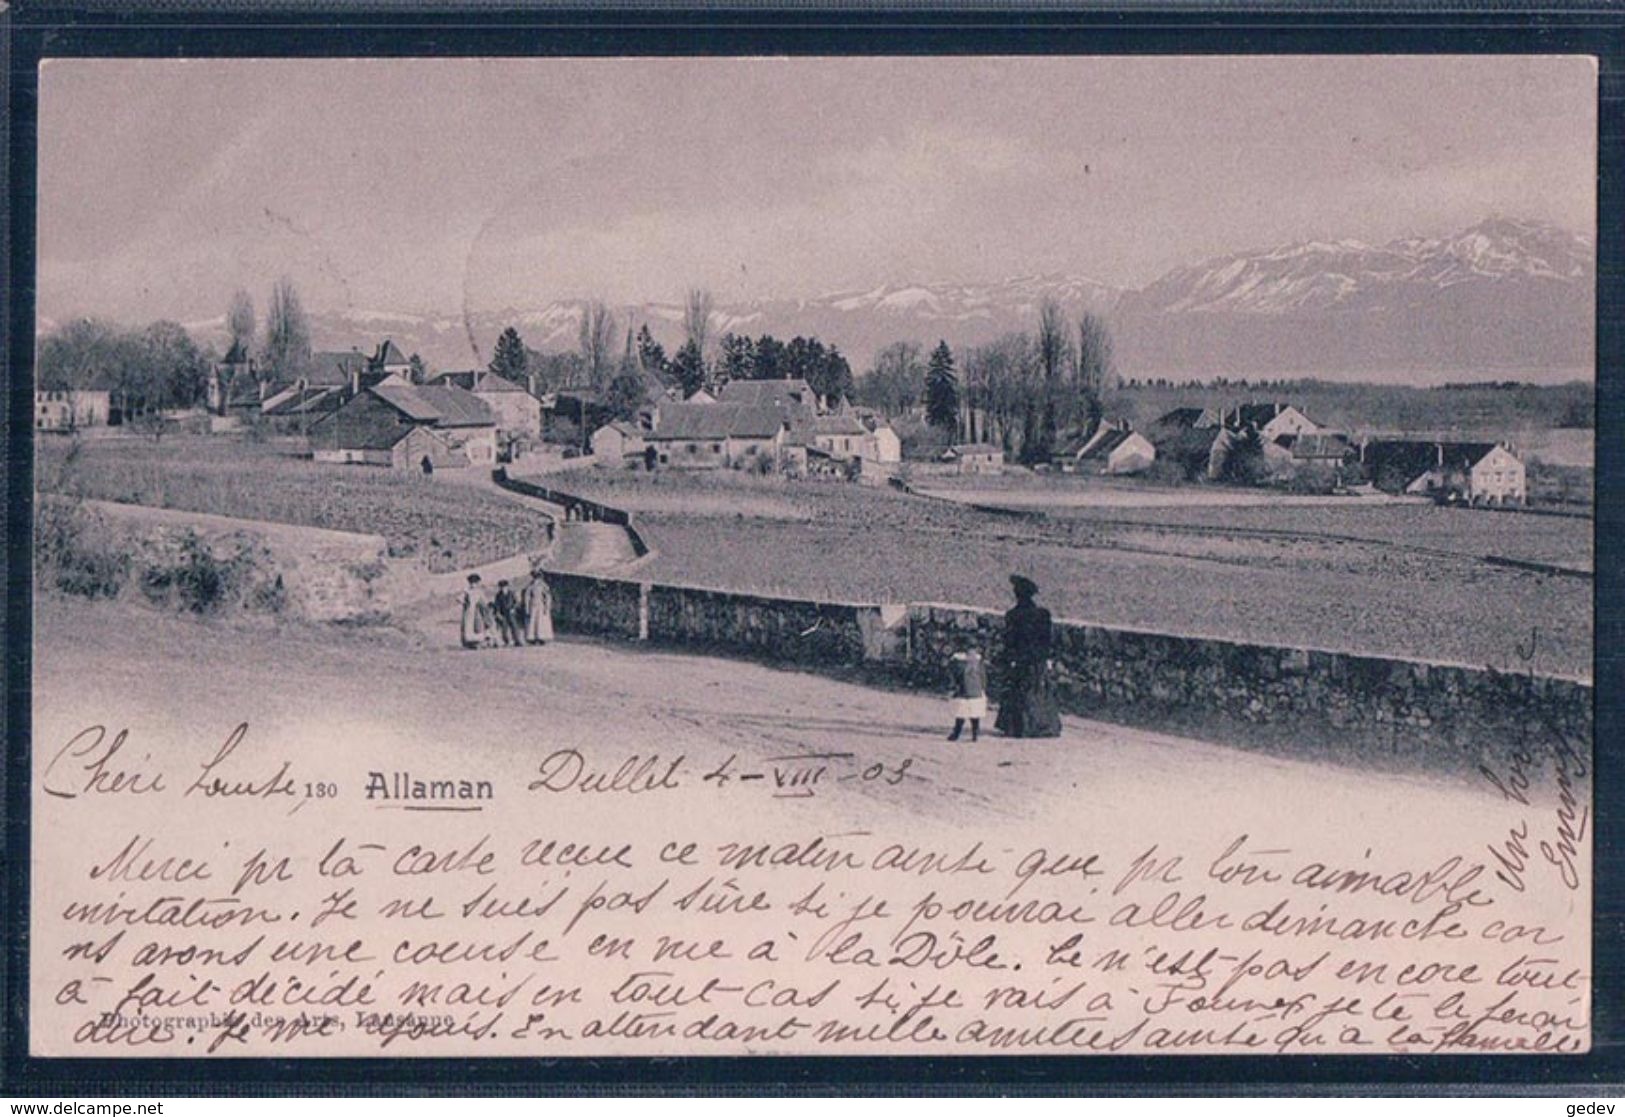 Chère Louise, 130 Allaman Dullit 4-VIII-03
Merci pr la carte reçue ce matin ainsi que pr ton aimable
invitation. Je ne suis pas sûre si je pourrai aller dimanche car
ns avons une course en vue à la Dôle. Ce n'est pas encore tout
à fait décidé mais en tout cas si je vais à je te le ferai
dire. Je me réjouis. En attendant mille amitiés ainsi qu'à ta famille
Emmy
Photographie des Arts, Lausanne
www.delcampe.net
gedev